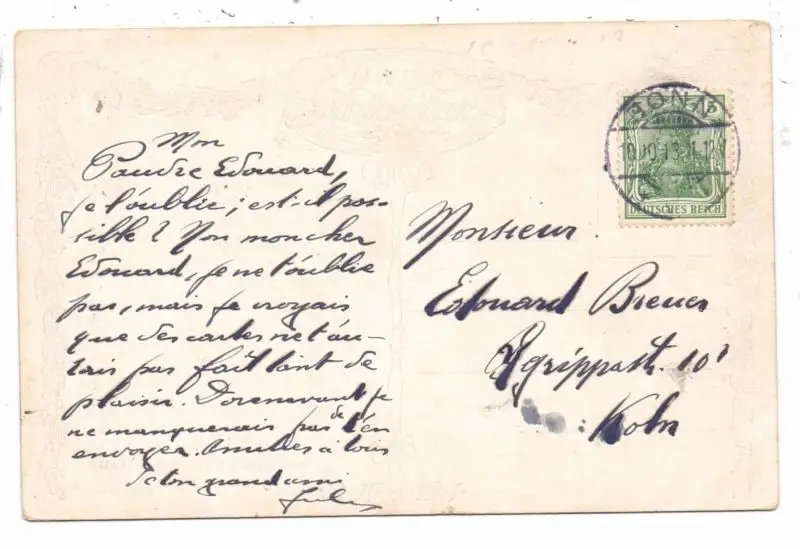 Mon
Edouard,
je t'oublie; est-il pos-
sible? Non mon cher
Edouard, je ne t'oublie
pas, mais je croyais
que des cartes ne t'au-
rais pas fait tant de
plaisir. Dorenavant je
ne manquerais pas de t'en
envoyer. Amities à tous
ton grand ami
Jules
BONN
DEUTSCHES REICH
Monsieur.
Edouard Breuer
Agrippastr. 10
Koln